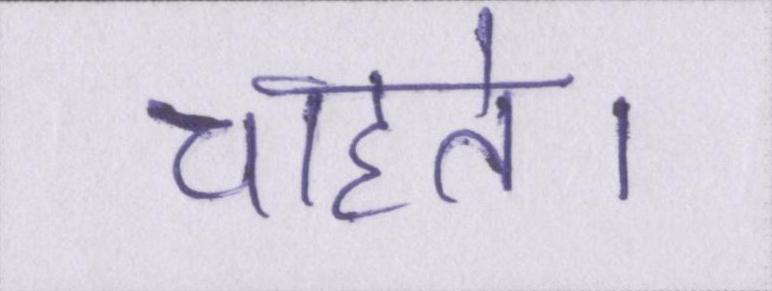 चाहते।